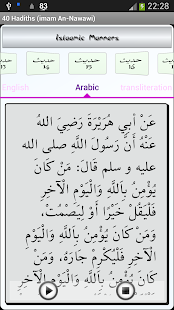 22:28
40 Hadiths (imam An-Nawawi)
Islamic Manners
حديث
13
حديث
14
حديث
15
حديث
16
English
Arabic
transliteration
عَنْ أَبِي هُرَيْرَةَ رَضِيَ اللهُ
عَنْهُ أَنَّ رَسُولَ اللَّهِ صلى الله
عليه و سلم قَالَ: مَنْ كَانَ
يُؤْمِنُ بِاَللَّهِ وَالْيَوْمِ الْآخِرِ
فَلْيَقُلْ خَيْرًا أَوْ لِيَصْمُتْ،
وَمَنْ كَانَ يُؤْمِنُ بِاَللَّهِ
وَالْيَوْمِ الْآخِرِ فَلْيُكْرِمْ جَارَهُ، وَمَنْ
كَانَ يُؤْمِنُ بِاَللَّهِ وَالْيَوْمِ الْآخِرِ